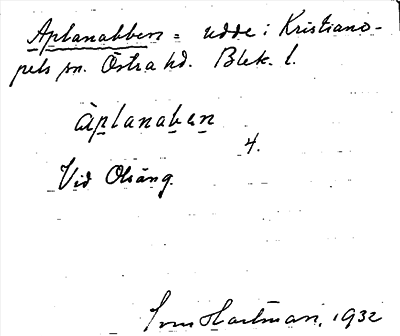 Aplanabben = udde i Kristiano-
pels sn. Östra hd. Blek. l.
àplanaben
4.
Vid Olsäng.
Sven Hartman, 1932